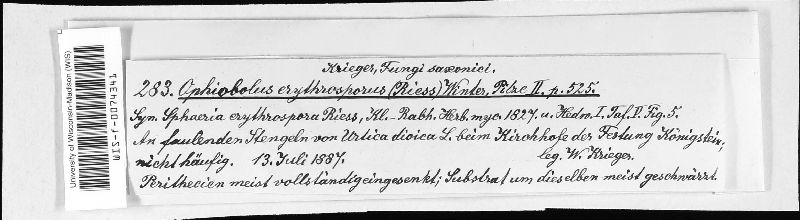 University of Wisconsin-Madison (WIS)
WIS-f-0074341
Krieger, Fungi saxonici.
283. Ophiobolus erythrosporus (Riess) Winter, Pilze II. p. 525.
Syn. Sphaeria erythrospora Riess, Kl.-Rabh. Herb. myc. 1827. u. Hedw. I. Taf. V. Fig. 5.
An faulenden Stengeln von Urtica dioica L. beim Kirchhofe der Festung Königstein,
nicht häufig. 13. Juli 1887. leg. W. Krieger.
Perithecien meist vollständig eingesenkt; Substrat um dieselben meist geschwärzt